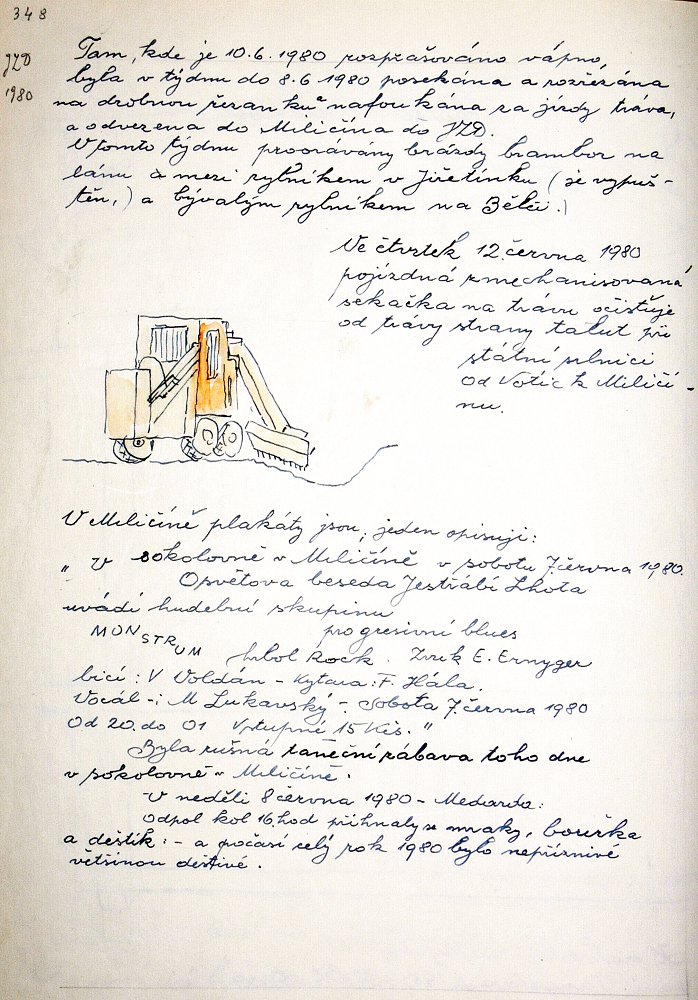 348
JZD
1980
Tam, kde je 10.6.1980 rozprašováno vápno,
byla v týdnu do 8.6 1980 posekána a rozřezána
na drobnou řezanku nafoukána za jízdy tráva,
a odvezena do Miličína do JZD.
V tomto týdnu proorávány brázdy brambor na
lánu a mezi rybníkem v Jiřetínku (je vypuš-
těn,) a bývalým rybníkem na Bělči.)
Ve čtvrtek 12. června 1980
pojízdná zmechanisovaná
sekačka na trávu očisťuje
od trávy strany talut při
státní silnici
od Votic k Miličí-
nu.
V Miličíně plakáty jsou, jeden opisuji:
„ V sokolovně v Miličíně v sobotu 7. června 1980.
Osvětova beseda Jestřábí Lhota
uvádí hudební skupinu
MONSTRUM progresivní blues
Rock. Zvuk E. Ernyger
bicí: V Voldán - Kytara: F. Hála.
Vocál -: M Lukavský - Sobota 7. června 1980
Od 20. do 01 Vstupné 15 Kčs. "
Byla rušná taneční zábava toho dne
v sokolovně v Miličíně.
V neděli 8 června 1980 - Medarda:
odpol kol 16. hod přihnaly se mraky, bouřka
a deštík: - a počasí celý rok 1980 bylo nepříznivé
většinou deštivé.